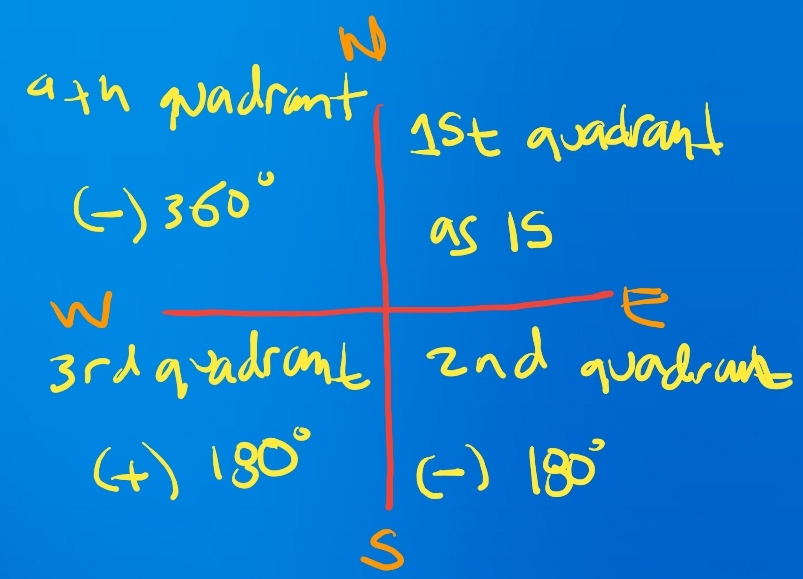 N
4th quadrant
1st quadrant
(-) 360°
as is
W
E
3rd quadrant
2nd quadrant
(+) 180°
(-) 180°
S